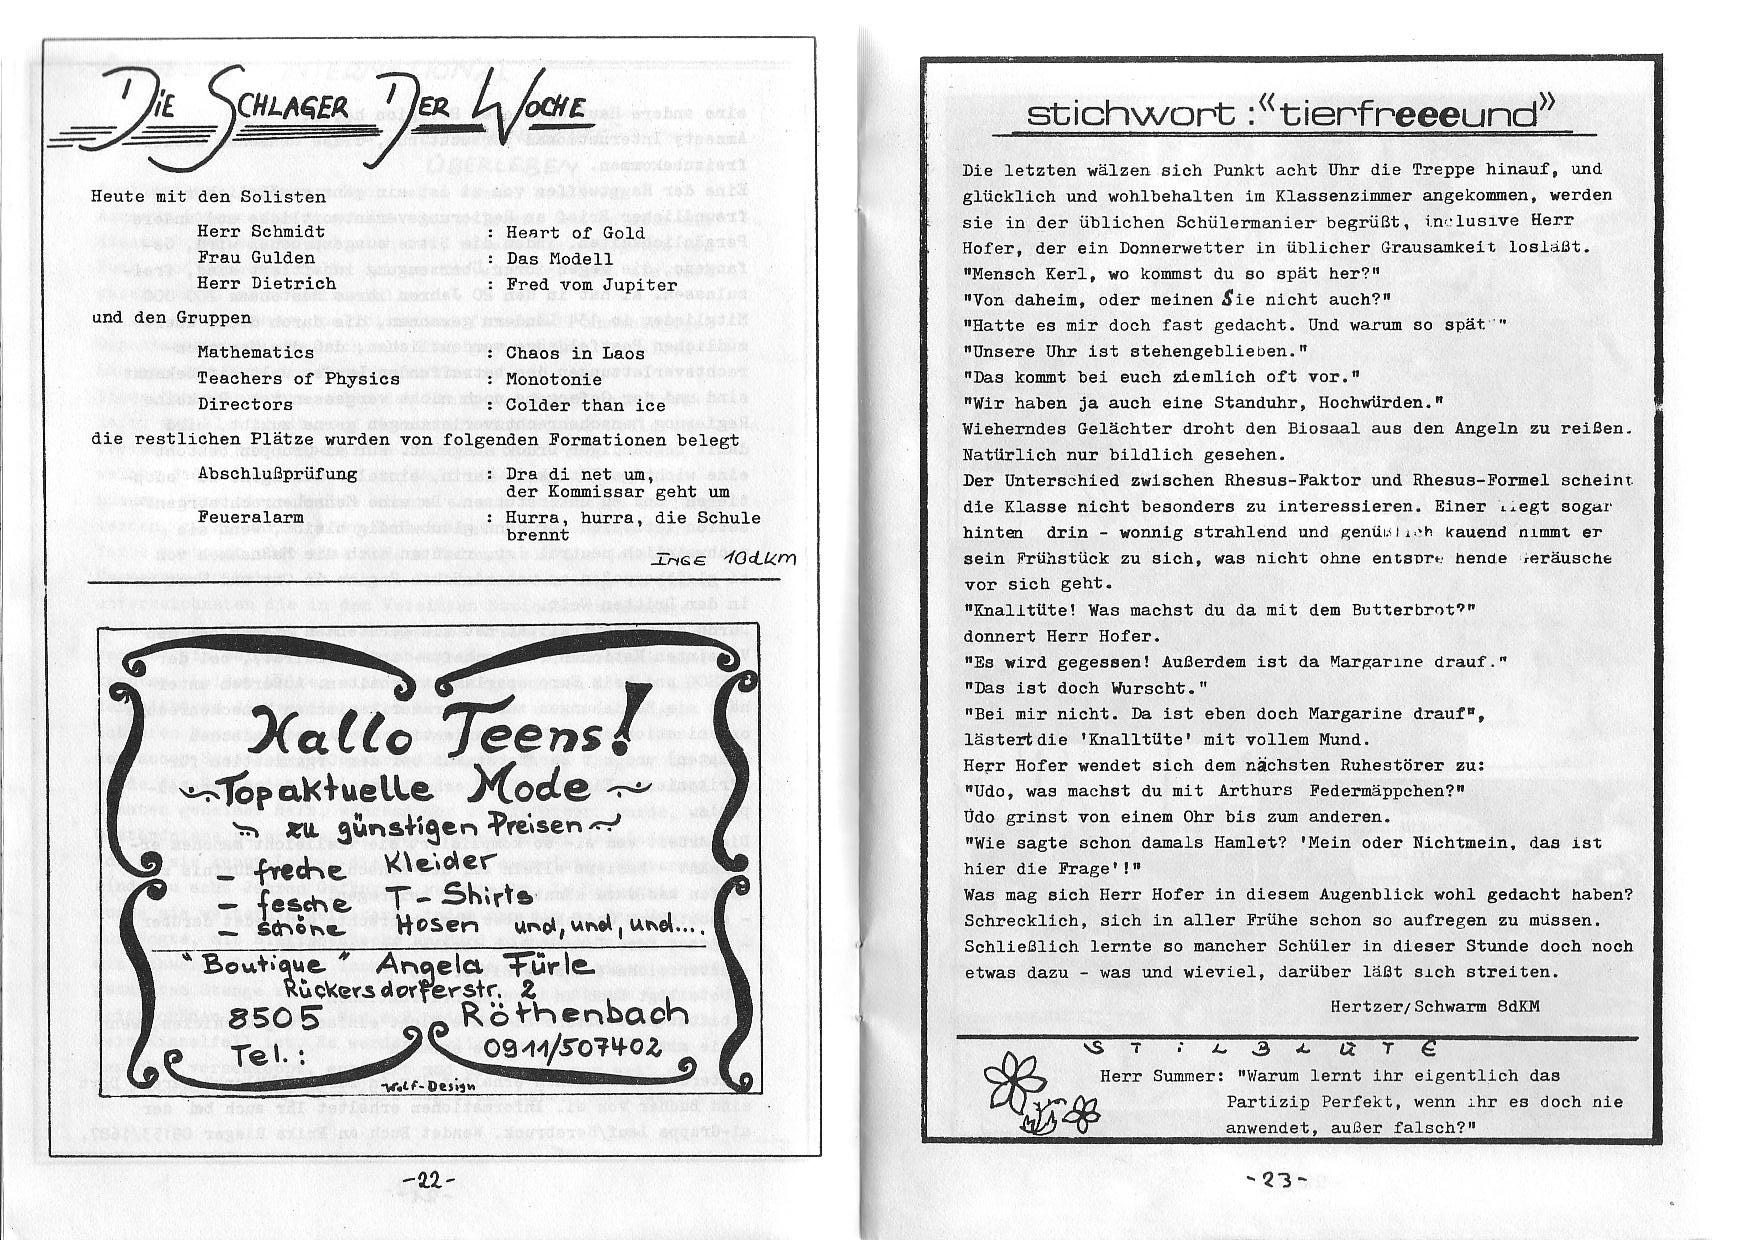 Die Schlager Der Woche
Heute mit den Solisten
Herr Schmidt : Heart of Gold
Frau Gulden : Das Modell
Herr Dietrich : Fred vom Jupiter
und den Gruppen
Mathematics : Chaos in Laos
Teachers of Physics : Monotonie
Directors : Colder than ice
die restlichen Plätze wurden von folgenden Formationen belegt
Abschlußprüfung : Dra di net um,
der Kommissar geht um
Feueralarm : Hurra, hurra, die Schule
brennt
Inge 10dkm
Hallo Teens!
Topaktuelle Mode
zu günstigen Preisen
freche Kleider
- fesche T-Shirts
- schöne Hosen und, und, und....
"Boutique" Angela Fürle
Rückersdorferstr. 2
8505 Röthenbach
Tel.: 0911/507402
Wolf-Design
-22-
stichwort :“tierfreeeund”
Die letzten wälzen sich Punkt acht Uhr die Treppe hinauf, und
glücklich und wohlbehalten im Klassenzimmer angekommen, werden
sie in der üblichen Schülermanier begrüßt, inclusive Herr
Hofer, der ein Donnerwetter in üblicher Grausamkeit losläßt.
"Mensch Kerl, wo kommst du so spät her?"
"Von daheim, oder meinen Sie nicht auch?"
"Hatte es mir doch fast gedacht. Und warum so spät "
"Unsere Uhr ist stehengeblieben."
"Das kommt bei euch ziemlich oft vor."
"Wir haben ja auch eine Standuhr, Hochwürden."
Wieherndes Gelächter droht den Biosaal aus den Angeln zu reißen.
Natürlich nur bildlich gesehen.
Der Unterschied zwischen Rhesus-Faktor und Rhesus-Formel scheint
die Klasse nicht besonders zu interessieren. Einer liegt sogar
hinten drin - wonnig strahlend und genüßlich kauend nimmt er
sein Frühstück zu sich, was nicht ohne entsprechende Geräusche
vor sich geht.
"Knalltüte! Was machst du da mit dem Butterbrot?"
donnert Herr Hofer.
"Es wird gegessen! Außerdem ist da Margarine drauf."
"Das ist doch Wurscht."
"Bei mir nicht. Da ist eben doch Margarine drauf",
lästert die 'Knalltüte' mit vollem Mund.
Herr Hofer wendet sich dem nächsten Ruhestörer zu:
"Udo, was machst du mit Arthurs Federmäppchen?"
Udo grinst von einem Ohr bis zum anderen.
"Wie sagte schon damals Hamlet? 'Mein oder Nichtmein, das ist
hier die Frage'!"
Was mag sich Herr Hofer in diesem Augenblick wohl gedacht haben?
Schrecklich, sich in aller Frühe schon so aufregen zu müssen.
Schließlich lernte so mancher Schüler in dieser Stunde doch noch
etwas dazu - was und wieviel, darüber läßt sich streiten.
Hertzer/Schwarm 8dKM
STILBLÜTE
Herr Summer: "Warum lernt ihr eigentlich das
Partizip Perfekt, wenn ihr es doch nie
anwendet, außer falsch?"
-23-